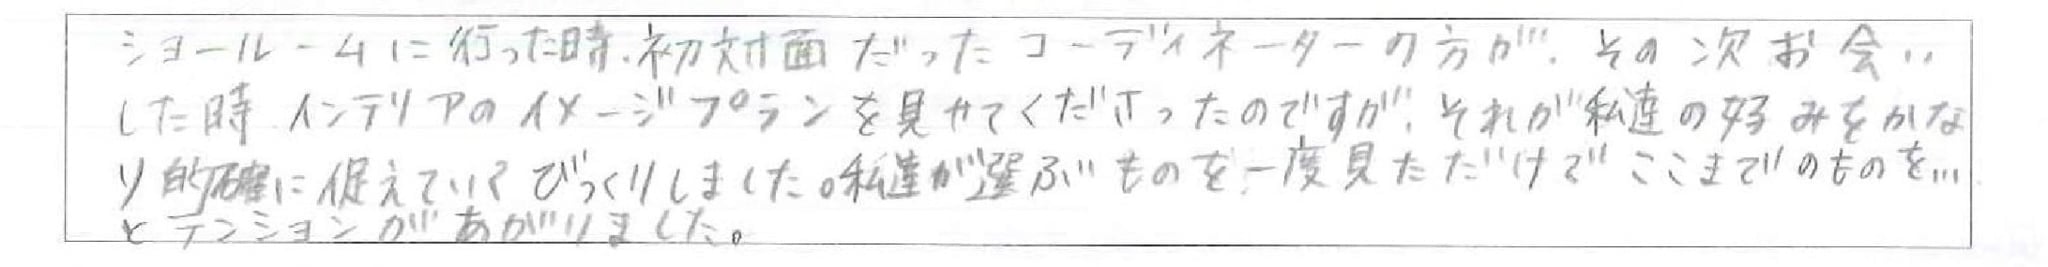 ショールームに行った時、初対面だったコーディネーターの方が、その次お会い
した時、インテリアのイメージプランを見せてくださったのですが、それが私達の好みをかな
り的確に捉えていてびっくりしました。私達が選ぶものを一度見ただけでここまでのものを…
とテンションがあがりました。